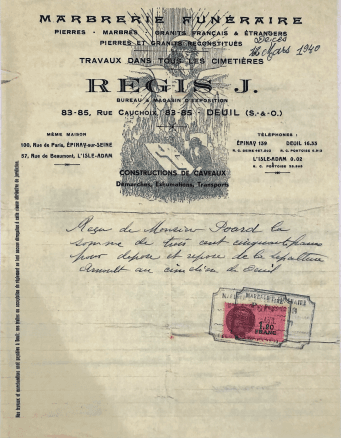 MARBRERIE FUNÉRAIRE
PIERRES - MARBRES GRANITS FRANÇAIS & ÉTRANGERS
PIERRES ET GRANITS RECONSTITUÉS
Mars 1940
TRAVAUX DANS TOUS LES CIMETIÈRES
REGIS J.
BUREAU & MAGASIN D'EXPOSITION
83-85, RUE CAUCHOIX 83-85 - DEUIL (S.-&-O.)
MÊME MAISON
100, Rue de Paris, ÉPINAY-sur-SEINE
57, Rue de Beaumont, L'ISLE-ADAM
TÉLÉPHONES :
ÉPINAY 139 DEUIL 16.33
L'ISLE-ADAM 0.02
CONSTRUCTIONS DE CAVEAUX
Démarches, Exhumations, Transports
Reçu de Monsieur la
somme de trois cent cinquante francs
pour dépose et repose de la sépulture
au cimetière de Deuil
MARBRERIE FUNÉRAIRE
1,20
FRANC